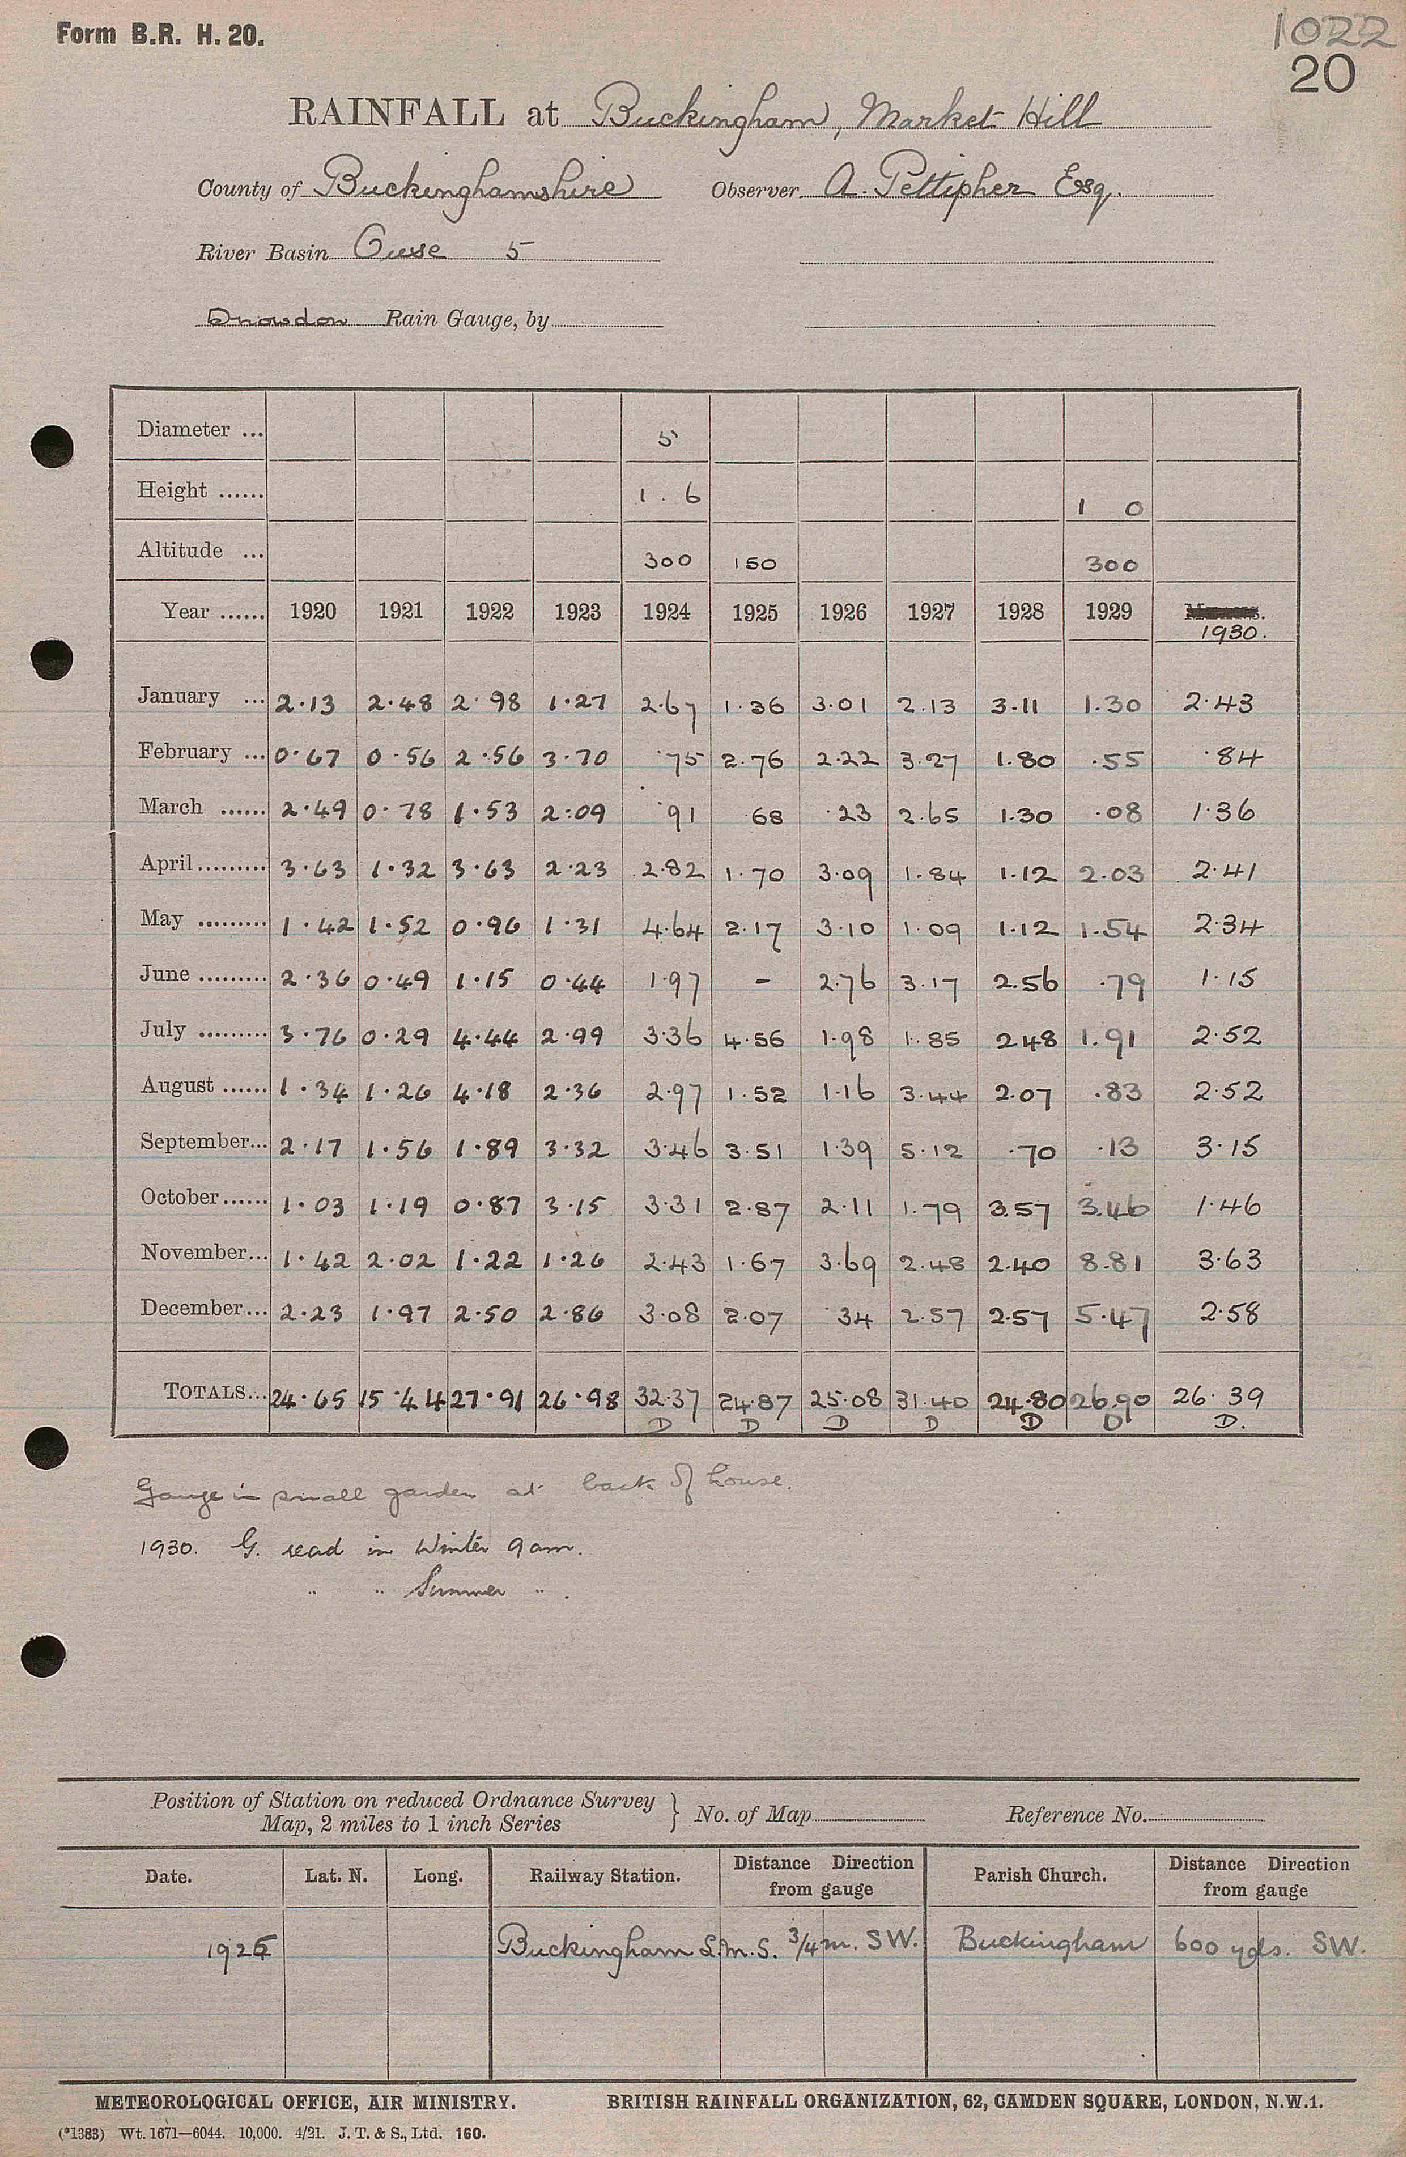 Form B.R. H. 20.
1022
20
RAINFALL at Buckingham, Market Hill
County of Buckinghamshire Observer A. Pettipher Esq.
River Basin Ouse 5
Snowdon Rain Gauge, by
Diameter ... 5
Height ...... 1 . 6 1 0
Altitude ... 300 150 300
Year ...... 1920 1921 1922 1923 1924 1925 1926 1927 1928 1929 1930.
January ... 2.13 2.48 2.98 1.27 2.67 1.36 3.01 2.13 3.11 1.30 2.43
February ... 0.67 0.56 2.56 3.70 .75 2.76 2.22 3.27 1.80 .55 .84
March ...... 2.49 0.78 1.53 2.09 .91 .68 .23 2.65 1.30 .08 1.36
April ......... 3.63 1.32 3.63 2.23 2.82 1.70 3.09 1.84 1.12 2.03 2.41
May ......... 1.42 1.52 0.96 1.31 4.64 2.17 3.10 1.09 1.12 1.54 2.34
June ......... 2.36 0.49 1.15 0.44 1.97 - 2.76 3.17 2.56 .79 1.15
July ......... 3.76 0.29 4.44 2.99 3.36 4.56 1.98 1.85 2.48 1.91 2.52
August ...... 1.34 1.26 4.18 2.36 2.97 1.52 1.16 3.44 2.07 .83 2.52
September... 2.17 1.56 1.89 3.32 3.46 3.51 1.39 5.12 .70 .13 3.15
October...... 1.03 1.19 0.87 3.15 3.31 2.87 2.11 1.79 3.57 3.46 1.46
November... 1.42 2.02 1.22 1.26 2.43 1.67 3.69 2.48 2.40 8.81 3.63
December... 2.23 1.97 2.50 2.86 3.08 2.07 .34 2.57 2.57 5.47 2.58
TOTALS... 24.65 15.44 27.91 26.98 32.37 24.87 25.08 31.40 24.80 26.90 26.39
D D D D D D D.
Gauge in small garden at back of house.
1930. G. read in Winter 9am.
" " Summer " .
Position of Station on reduced Ordnance Survey
Map, 2 miles to 1 inch Series } No. of Map Reference No.
Date. Lat. N. Long. Railway Station. Distance Direction from gauge Parish Church. Distance Direction from gauge
1925 Buckingham L.M.S. 3/4 m. SW. Buckingham 600 yds. SW.
METEOROLOGICAL OFFICE, AIR MINISTRY. BRITISH RAINFALL ORGANIZATION, 62, CAMDEN SQUARE, LONDON, N.W.1.
(*1383) Wt. 1671—6044. 10,000. 4/21. J. T. & S., Ltd. 160.